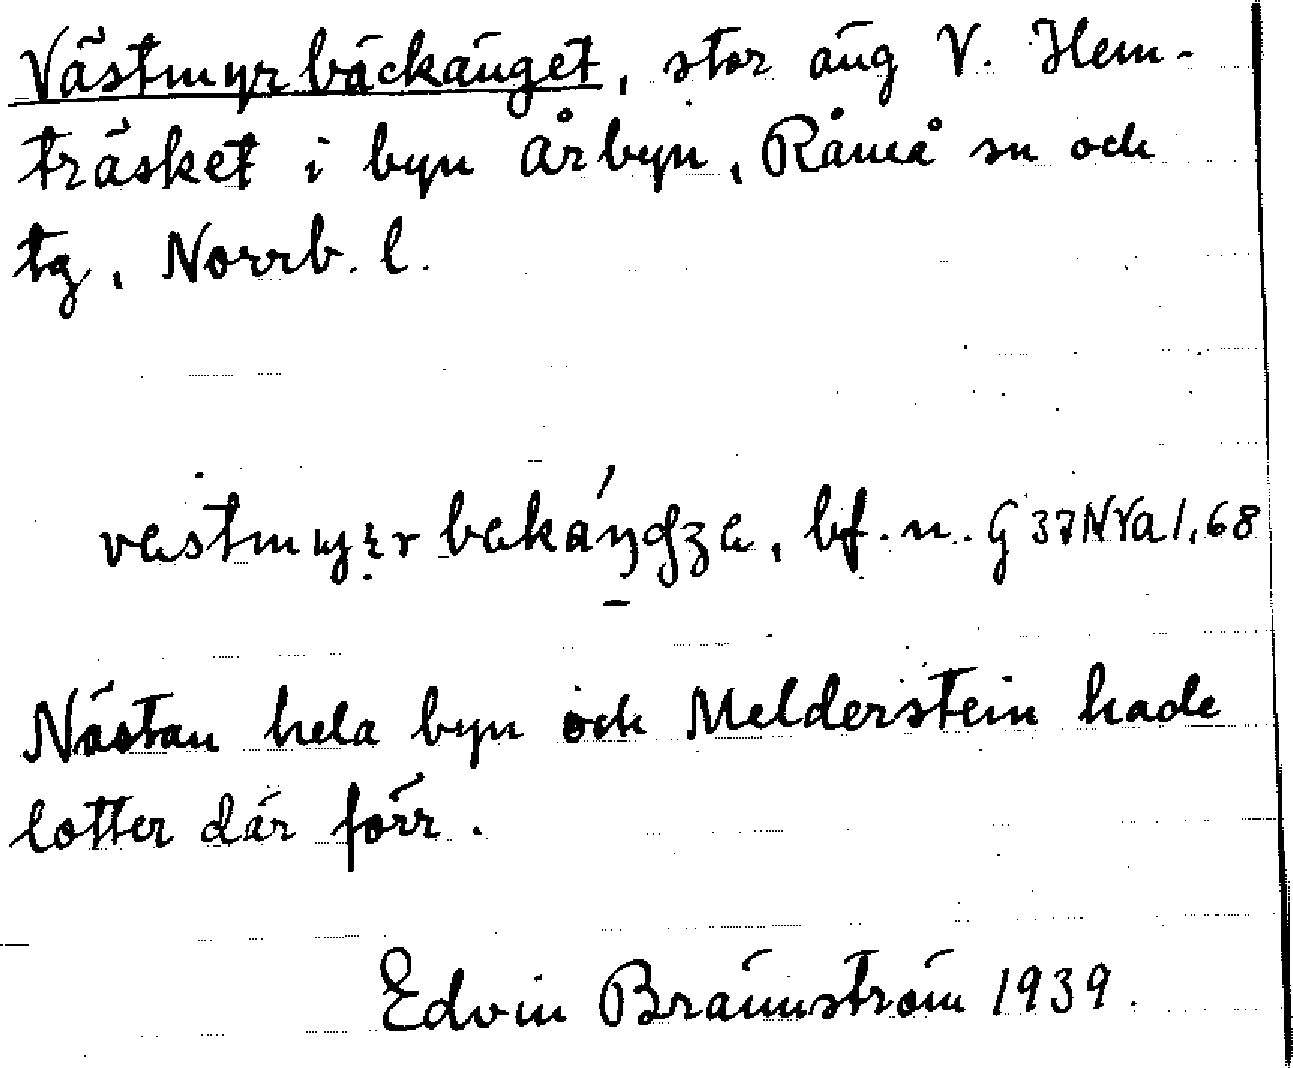 Västmyrbäckänget, stor äng V. Hem-
träsket i byn Årbyn, Råneå sn och
tg, Norrb. l.
bf. n.
Nästan hela byn och Melderstein hade
lotter där förr.
Edvin Brännström 1939.